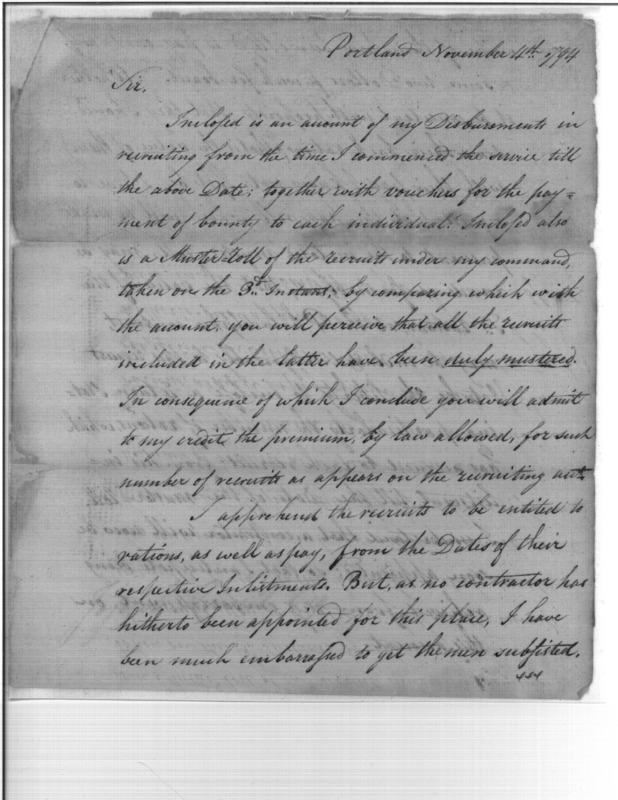 Portland November 4th. 1794
Sir,
Inclosed is an account of my Disbursements in
recruiting from the time I commenced the service till
the above Date; together with vouchers for the pay=
ment of bounty to each individual. Inclosed also
is a Muster Roll of the recruits under my command,
taken on the 3d. Instant; by comparing which with
the account, you will perceive that all the recruits
included in the latter have been duly mustered.
In consequence of which I conclude you will admit
to my credit the premium, by law allowed, for such
number of recruits as appears on the recruiting acct.
I apprehend the recruits to be entitled to
rations, as well as pay, from the Dates of their
respective Inlistments. But, as no contractor has
hitherto been appointed for this place, I have
been much embarrassed to get the men subsisted.